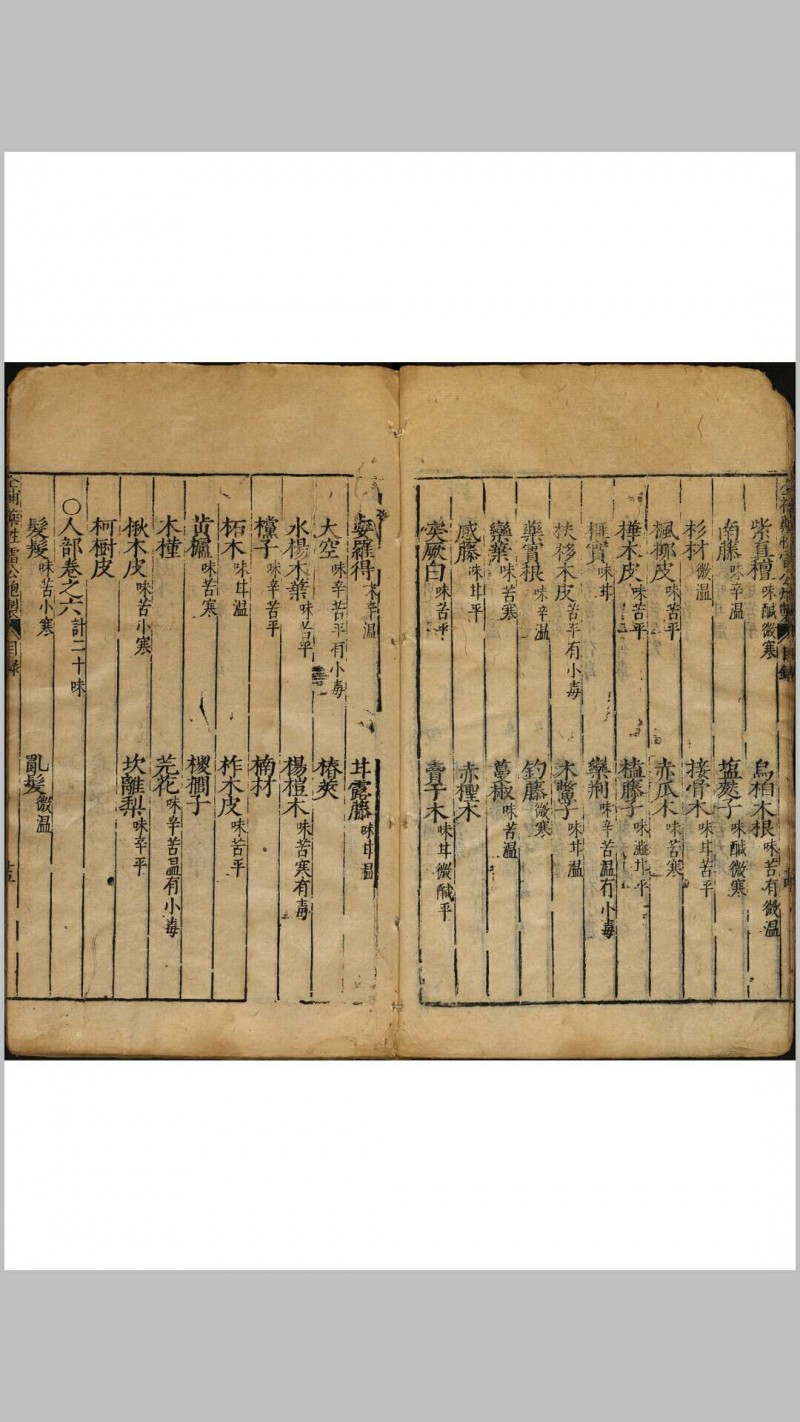 紫真檀 味鹹微寒 烏桕木根 味苦有微温
南藤 味辛温 塩麩子 味鹹微寒
杉材 微温 接骨木 味甘苦平
楓柳皮 味苦平 赤瓜木 味苦寒
樺木皮 味苦平 榼藤子 味澁甘平
榧實 味甘 欒荆 味辛苦温有小毒
扶栘木皮 苦平有小毒 木鱉子 味甘温
藥實根 味辛温 釣藤 微寒
欒華 味苦寒 蔓椒 味苦温
感藤 味甘平 赤檉木
突厥白 味苦平 賣子木 味甘微鹹平
婆羅得 味辛温 甘露藤 味甘温
大空 味辛苦平有小毒 椿莢
水楊木葉 味苦平 楊櫨木 味苦寒有毒
欓子 味辛苦平 楠材
柘木 味甘温 柞木皮 味苦平
黄櫨 味苦寒 椶櫚子
木槿 芫花 味辛苦温有小毒
楸木皮 味苦小寒 坎離梨 味辛平
柯樹皮
○人部卷之六 計二十味
髮髲 味苦小寒 亂髮 微温